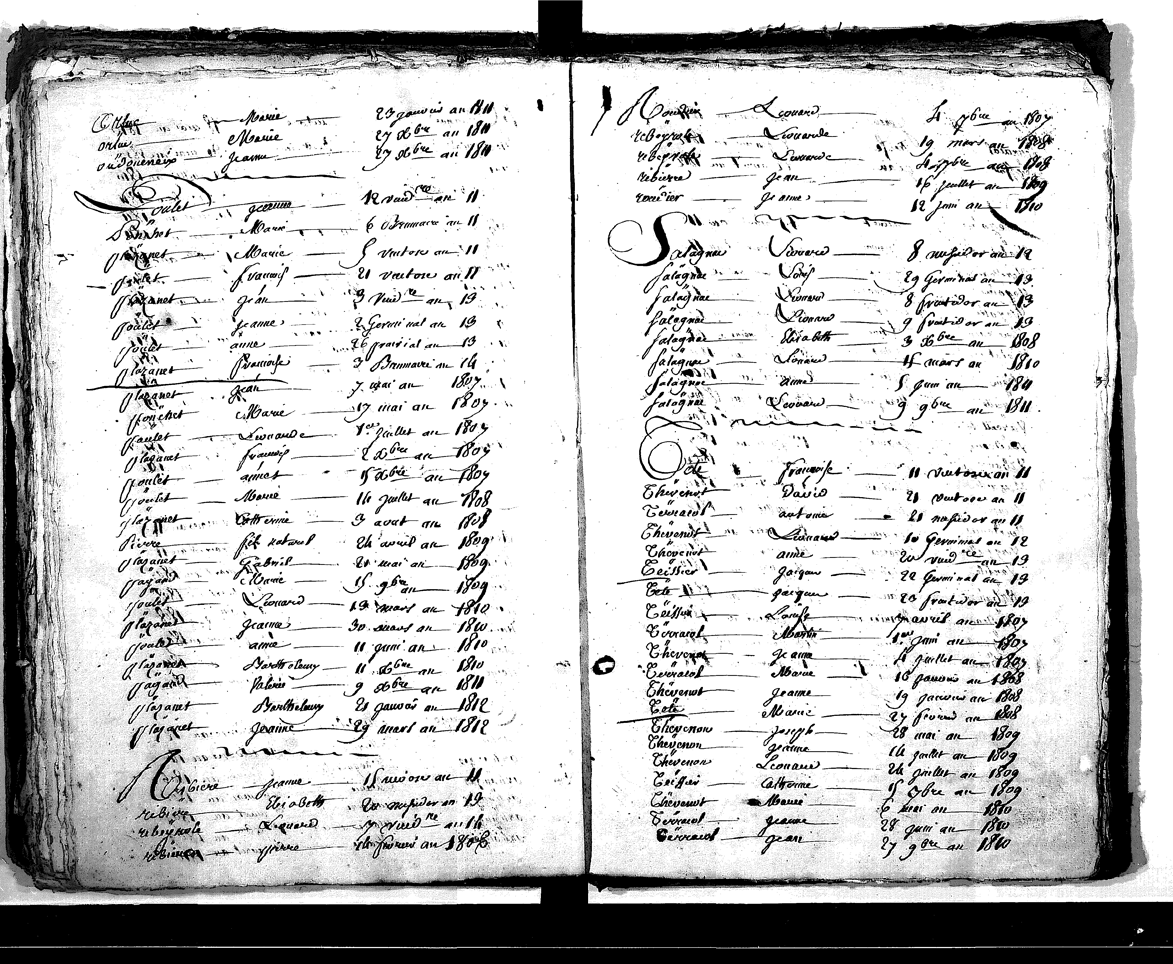 Orluc Marie 23 janvier an 1811
orluc Marie 27 Xbre an 1811
Jeanne 27 Xbre an 1811
Poulet Jeanne 12 vend re an 11
Ponchet Marie 6 Brumaire an 11
plazanet Marie 5 ventose an 11
poulet francois 21 ventose an 11
plazanet jean 3 vend re an 13
poulet jeanne 2 Germinal an 13
poulet anne 26 prairial an 13
plazanet francoise 3 Brumaire an 14
plazanet jean 7 mai an 1807
ponchet Marie 17 mai an 1807
poulet Leonarde 1er juillet an 1807
plazanet francois 2 Xbre an 1807
poulet annet 15 Xbre an 1807
poulet Marie 14 juillet an 1808
plazanet Catherine 3 aout an 1808
Pierre fils naturel 24 avril an 1809
plazanet Gabriel 21 mai an 1809
Marie 15 9bre an 1809
poulet Leonard 13 mars an 1810
plazanet jeanne 30 mars an 1810
poulet anne 11 juin an 1810
plazanet Barthelemy 11 Xbre an 1810
Valerie 9 Xbre an 1811
plazanet Barthelemy 21 janvier an 1812
plazanet jeanne 29 mars an 1812
Rebiere jeanne 15 nivose an 11
rebiere Elisabeth 20 messidor an 13
rebeyrole Leonard 7 vend re an 14
rebiere pierre 14 fevrier an 1806
Leonard 4 7bre an 1807
rebeyrole Leonarde 19 mars an 1808
rebeyrole Leonarde 4 7bre an 1808
rebiere jean 16 juillet an 1809
jeanne 12 juin an 1810
Salagnac Leonard 8 messidor an 12
Salagnac Louis 29 Germinal an 13
Salagnac Leonard 8 fructidor an 13
Salagnac Leonard 9 fructidor an 13
Salagnac Elisabeth 3 Xbre an 1808
Salagnac Leonard 15 mars an 1810
Salagnac anne 5 juin an 1811
Salagnac Leonard 9 9bre an 1811
Tete francoise 11 ventose an 11
Thevenot David 21 ventose an 11
Terracol antoine 21 messidor an 11
Thevenot Leonard 10 Germinal an 12
Thevenot anne 20 vend re an 13
Teissier jacques 22 Germinal an 13
Tete jacques 23 fructidor an 13
Teissier Louise avril an 1807
Terracol Martin 1er juin an 1807
Thevenot jeanne 4 juillet an 1807
Terracol Marie 16 janvier an 1808
Thevenot jeanne 19 janvier an 1808
Tete Marie 27 fevrier an 1808
Thevenon joseph 28 mai an 1809
Thevenon jeanne 14 juillet an 1809
Thevenon Leonard 24 juillet an 1809
Teissier Catherine 15 7bre an 1809
Thevenot Marie 6 mai an 1810
Terracol jeanne 28 juin an 1810
Terracol jean 27 9bre an 1810